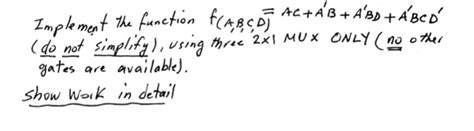 Implement the function f(A,B,C,D) = AC + A'B + A'BD + A'BCD'
(do not simplify), using three 2x1 MUX ONLY (no other
gates are available).
Show Work in detail